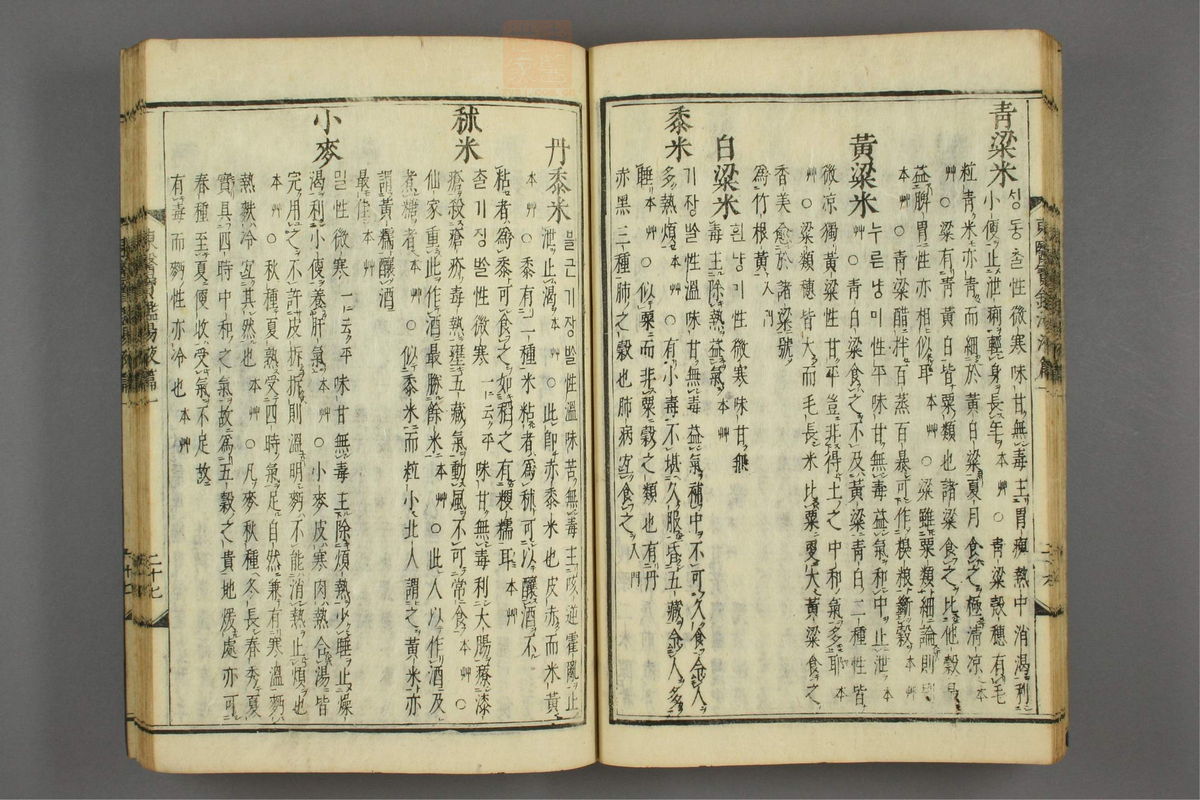 靑粱米 성동ᄎᆞᆯ性微寒味甘無毒主胃痺熱中消渴利
小便止泄痢輕身長年 本艸 ○靑粱殼穗有毛
粒靑米亦靑而細於黃白粱夏月食之極淸凉 本
艸 ○粱有靑黃白皆粟類也諸粱食之比他穀
益脾胃性亦相似耳 本艸 ○粱雖粟類細論則
本艸 ○靑粱醋拌百蒸百暴可作糗粮斷穀 本艸
黃粱米 누른냥미性平味甘無毒益氣和中止泄 本
艸 ○靑白粱食之不及黃粱靑白二種性皆
微凉獨黃粱性甘平豈非得土之中和氣多耶 本
艸 ○粱類穗皆大而毛長米比粟更大黃粱食之
香美愈於諸粱號
爲竹根黃 入門
白粱米 흰냥미性微寒味甘無
毒主除熱益氣 本艸
黍米 기장ᄡᆞᆯ性溫味甘無毒益氣補中不可久食令人
多熱煩 本艸 ○有小毒不堪久服昏五藏令人多
睡 本艸 ○似粟而非粟穀之類也有丹
赤黑三種肺之穀也肺病宜食之 入門
丹黍米 블근기장ᄡᆞᆯ性溫味苦無毒主咳逆霍亂止
泄止渴 本艸 ○此卽赤黍米也皮赤而米黃
本艸 ○黍有二種米粘者爲秫可以釀酒不
粘者爲黍可食之如稻之有粳糯耳 本艸
秫米 ᄎᆞᆯ기장ᄡᆞᆯ性微寒 一云平 味甘無毒利大腸療漆
瘡殺瘡疥毒熱壅五藏氣動風不可常食 本艸 ○
仙家重此作酒最勝餘米 本艸 ○此人以作酒及
煮糖者 本艸 ○似黍米而粒小北人謂之黃米亦
謂黃糯釀酒
最佳 本艸
小麥 밀性微寒 一云平 味甘無毒主除煩熱少睡止燥
渴利小便養肝氣 本艸 ○小麥皮寒肉熱合湯皆
完用之不許皮拆拆則溫明麪不能消熱止煩也
本艸 ○秋種夏熟受四時氣足自然兼有寒溫麪
熱麩冷宜其然也 本艸 ○凡麥秋種冬長春秀夏
實具四時中和之氣故爲五穀之貴地煖處亦可
春種至夏便收受氣不足故
有毒而麪性亦冷也 本艸
二十七